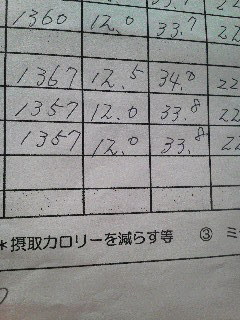 1360 12.0 33.7 22
1367 12.5 34.0 22
1357 12.0 33.8 22
1357 12.0 33.8 22
*摂取カロリーを減らす等 ③ ミ